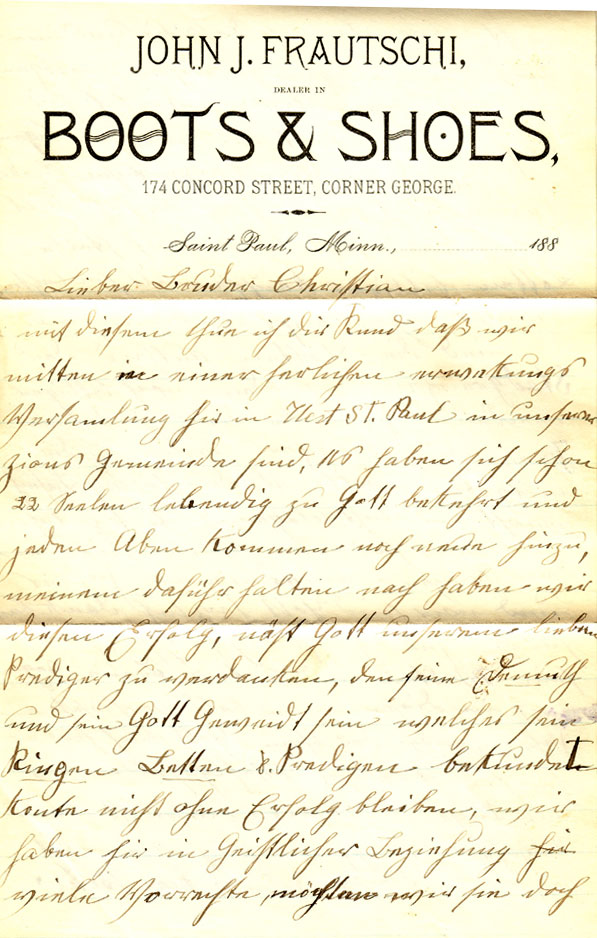 JOHN J. FRAUTSCHI,
DEALER IN
BOOTS & SHOES,
174 CONCORD STREET, CORNER GEORGE.
Saint Paul, Minn., 188
Lieber Bruder Christian
mit diesem thue ich dir Kund daß wir
mitten in einer herlichen erwekungs
Versamlung hir in West St. Paul in unserer
zions Gemeinde sind, es haben sich schon
22 Seelen lebendig zu Gott bekehrt und
jeden Aben kommen noch neue hinzu,
meinem daführ halten nach haben wir
diesen Erfolg, näst Gott unserem lieben
Prediger zu verdanken, den seine Demuth
und sein Gott Geweidt sein welches sein
Ringen Betten & Predigen bekundet
konte nicht ohne Erfolg bleiben, wir
haben hir in Geistlicher Beziehung hir
viele Vorrechte, möchten wir sie doch